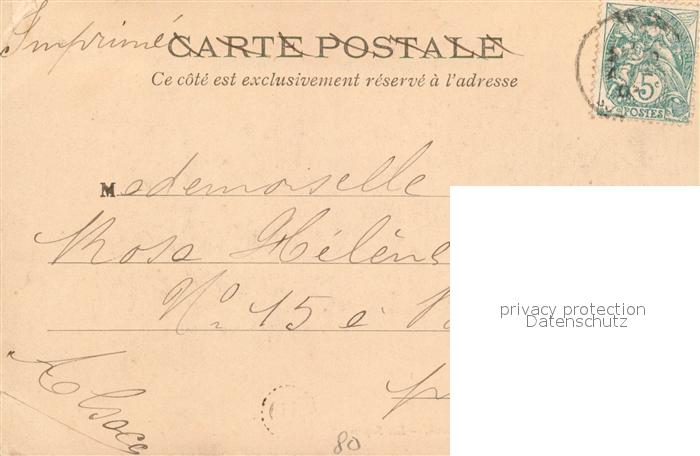 Imprimé CARTE POSTALE
Ce côté est exclusivement réservé à l'adresse
5c
POSTES
Mademoiselle
Rosa Hélène
No 15 à
privacy protection
Datenschutz
Alsace
80